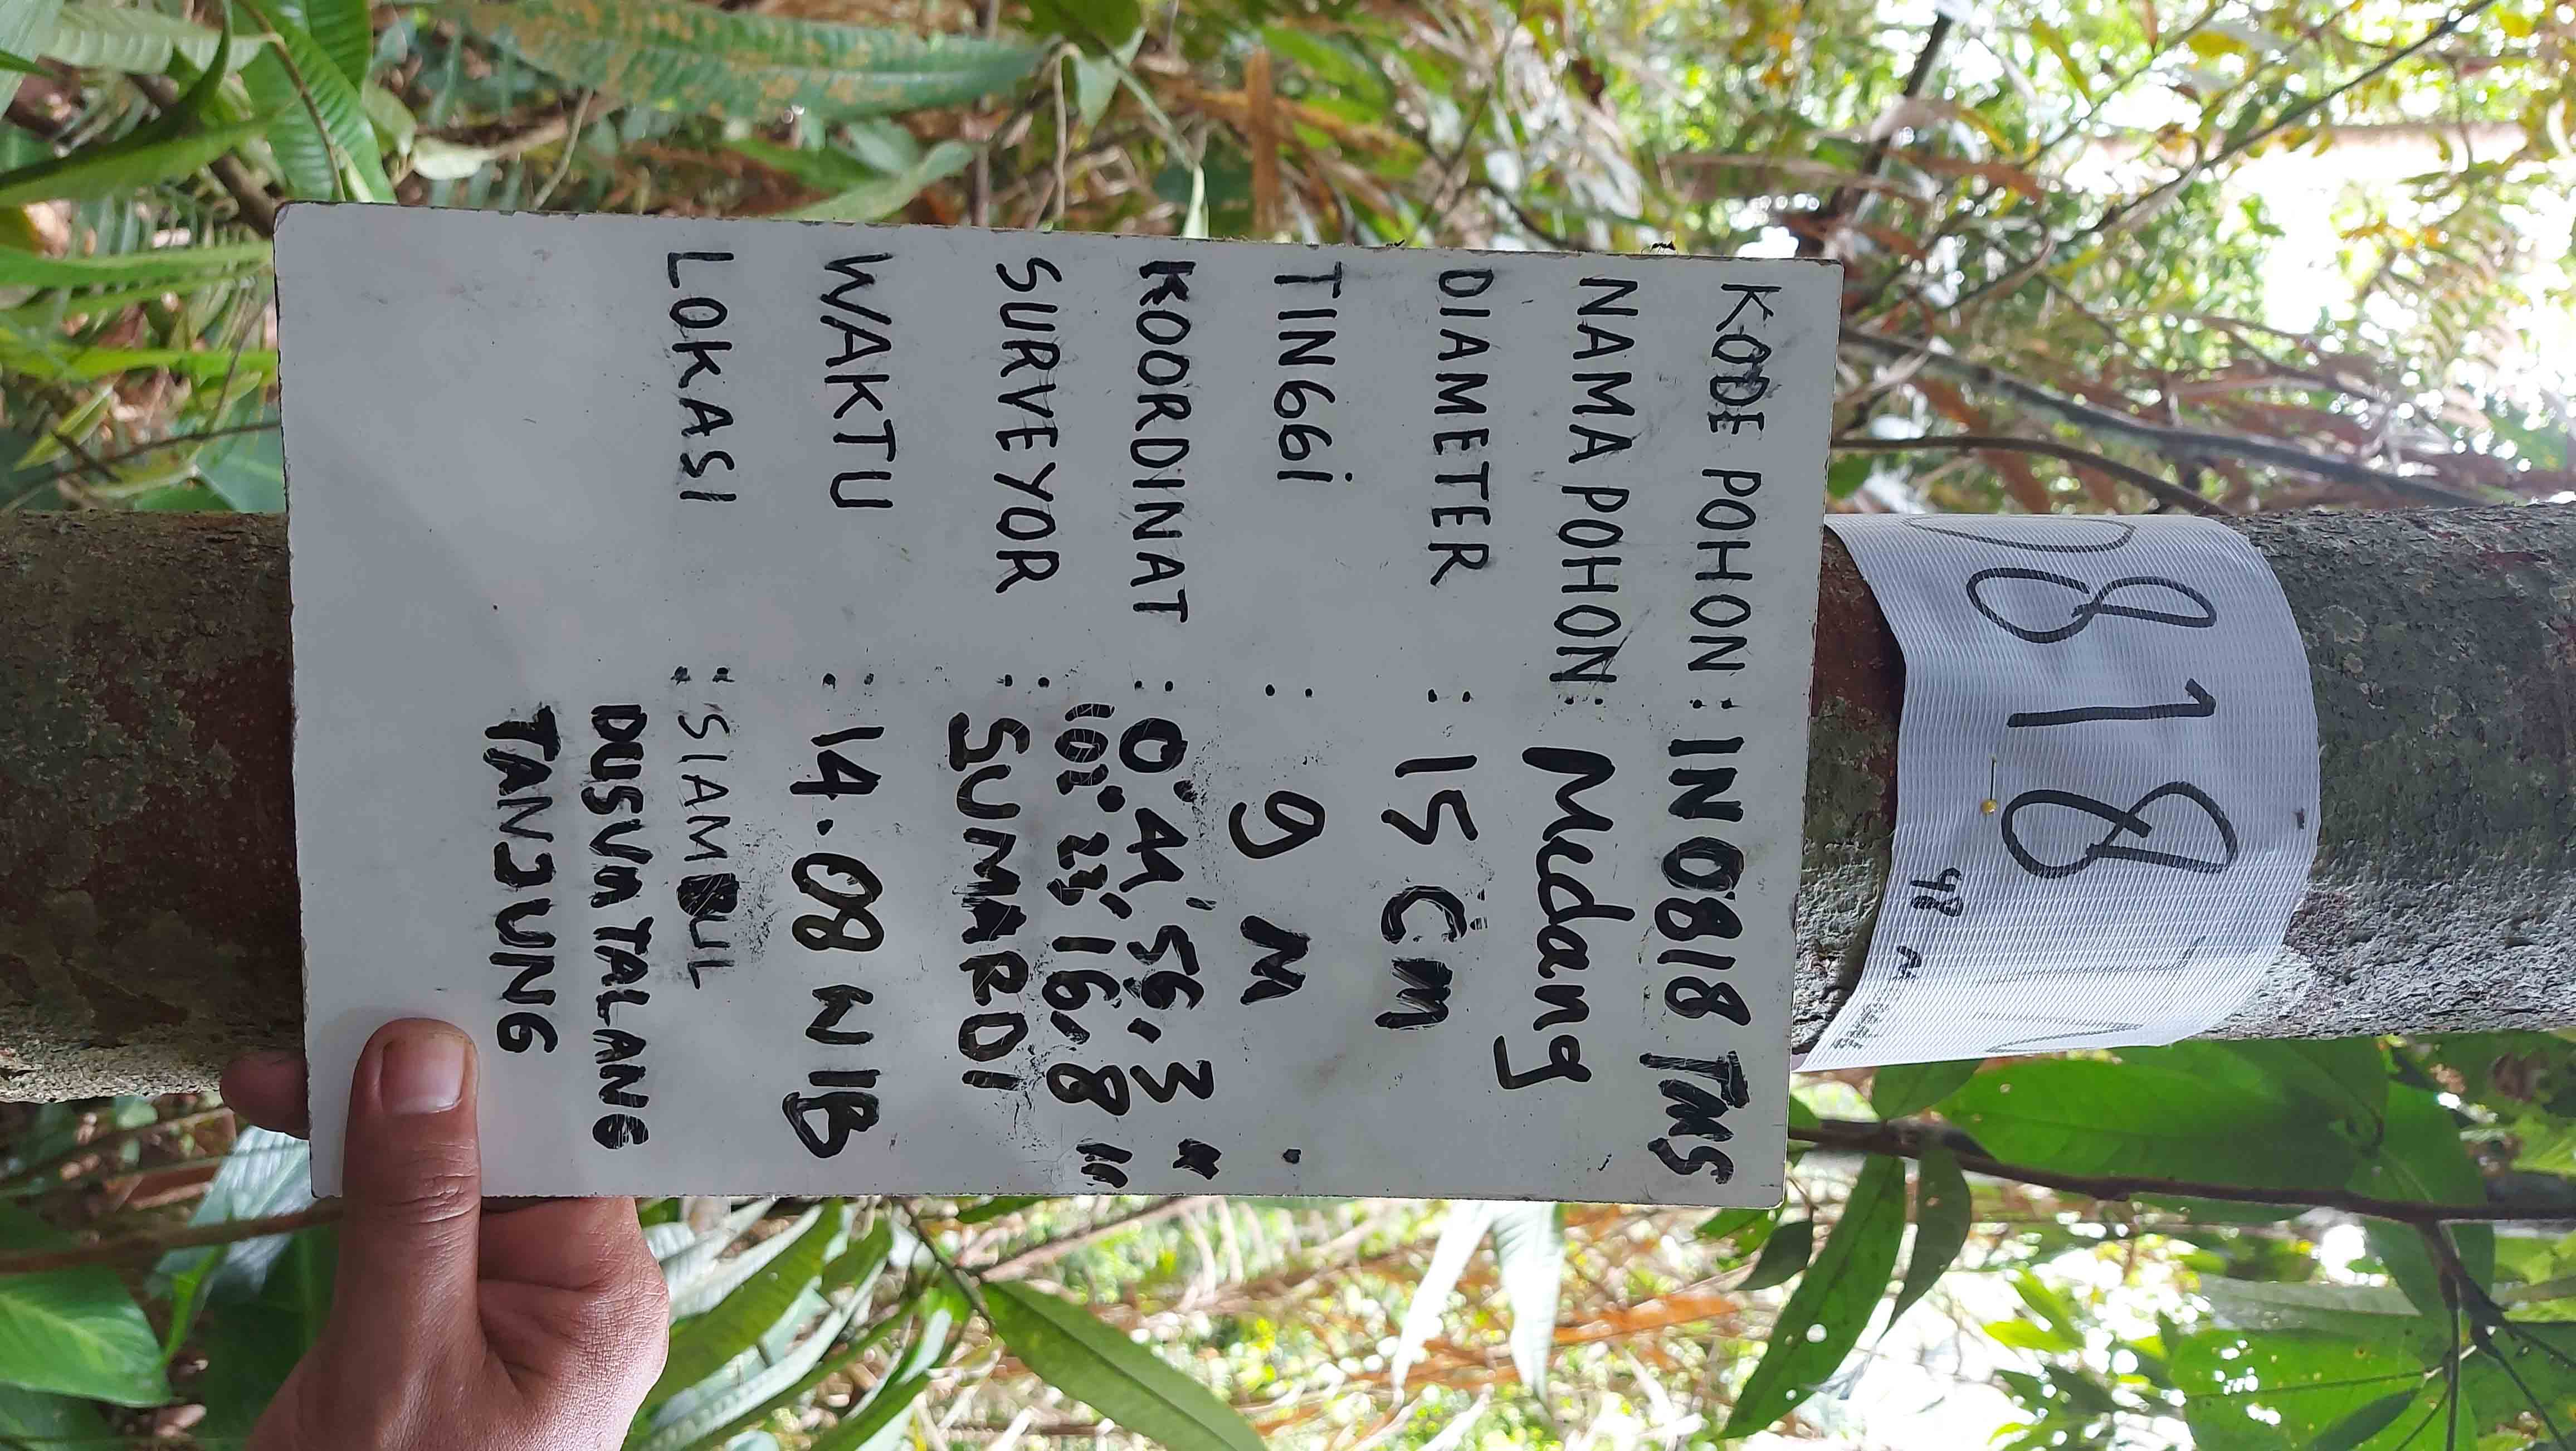 0818
KODE POHON : IN 0818 TMS
NAMA POHON : Medang
DIAMETER : 15 CM
TINGGi : 9 M
KOORDINAT : 0°.44',56,3"
16,8"
SURVEYOR : SUMARDI
WAKTU : 14.08 WIB
LOKASI : SIAMBUL
DUSUN TALANG
TANJUNG